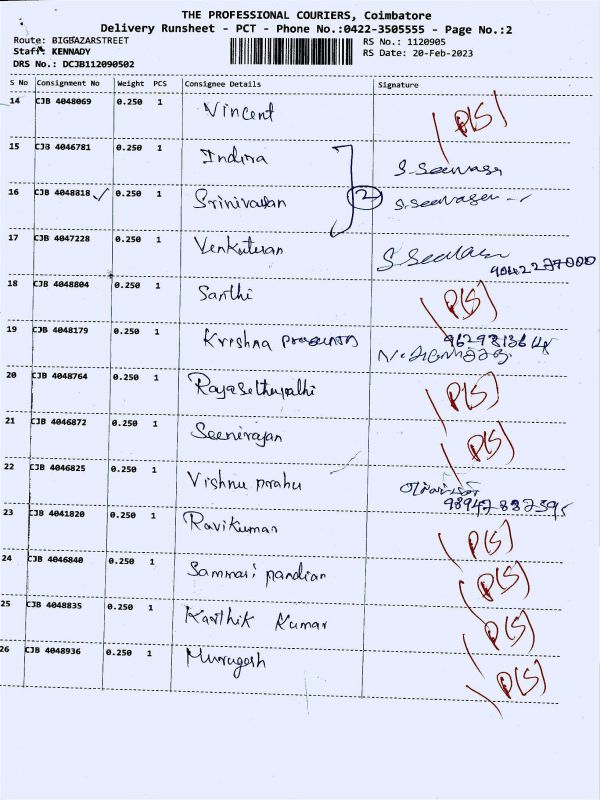 THE PROFESSIONAL COURIERS, Coimbatore
Delivery Runsheet - PCT - Phone No.:0422-3505555 - Page No.:2
Route: BIGBAZARSTREET RS No.: 1120905
Staff: KENNADY RS Date: 20-Feb-2023
DRS No.: DCJB112090502
S No Consignment No Weight PCS Consignee Details Signature
14 CJB 4048069 0.250 1 Vincent P(S)
15 CJB 4046781 0.250 1 Indira S. Seevasan
16 CJB 4048818 ✓ 0.250 1 Srinivasan 2 S. Seevasan
17 CJB 4047228 0.250 1 Venkatesan
18 CJB 4048804 0.250 1 Santhi P(S)
19 CJB 4048179 0.250 1 Krishna
20 CJB 4048764 0.250 1 Rajasethupathi P(S)
21 CJB 4046872 0.250 1 Seenirajan P(S)
22 CJB 4046825 0.250 1 Vishnu prabu
23 CJB 4041820 0.250 1 Ravikumar P(S)
24 CJB 4046840 0.250 1 Sammari pandian P(S)
25 CJB 4048835 0.250 1 Karthik Kumar P(S)
26 CJB 4048936 0.250 1 Murugesh P(S)